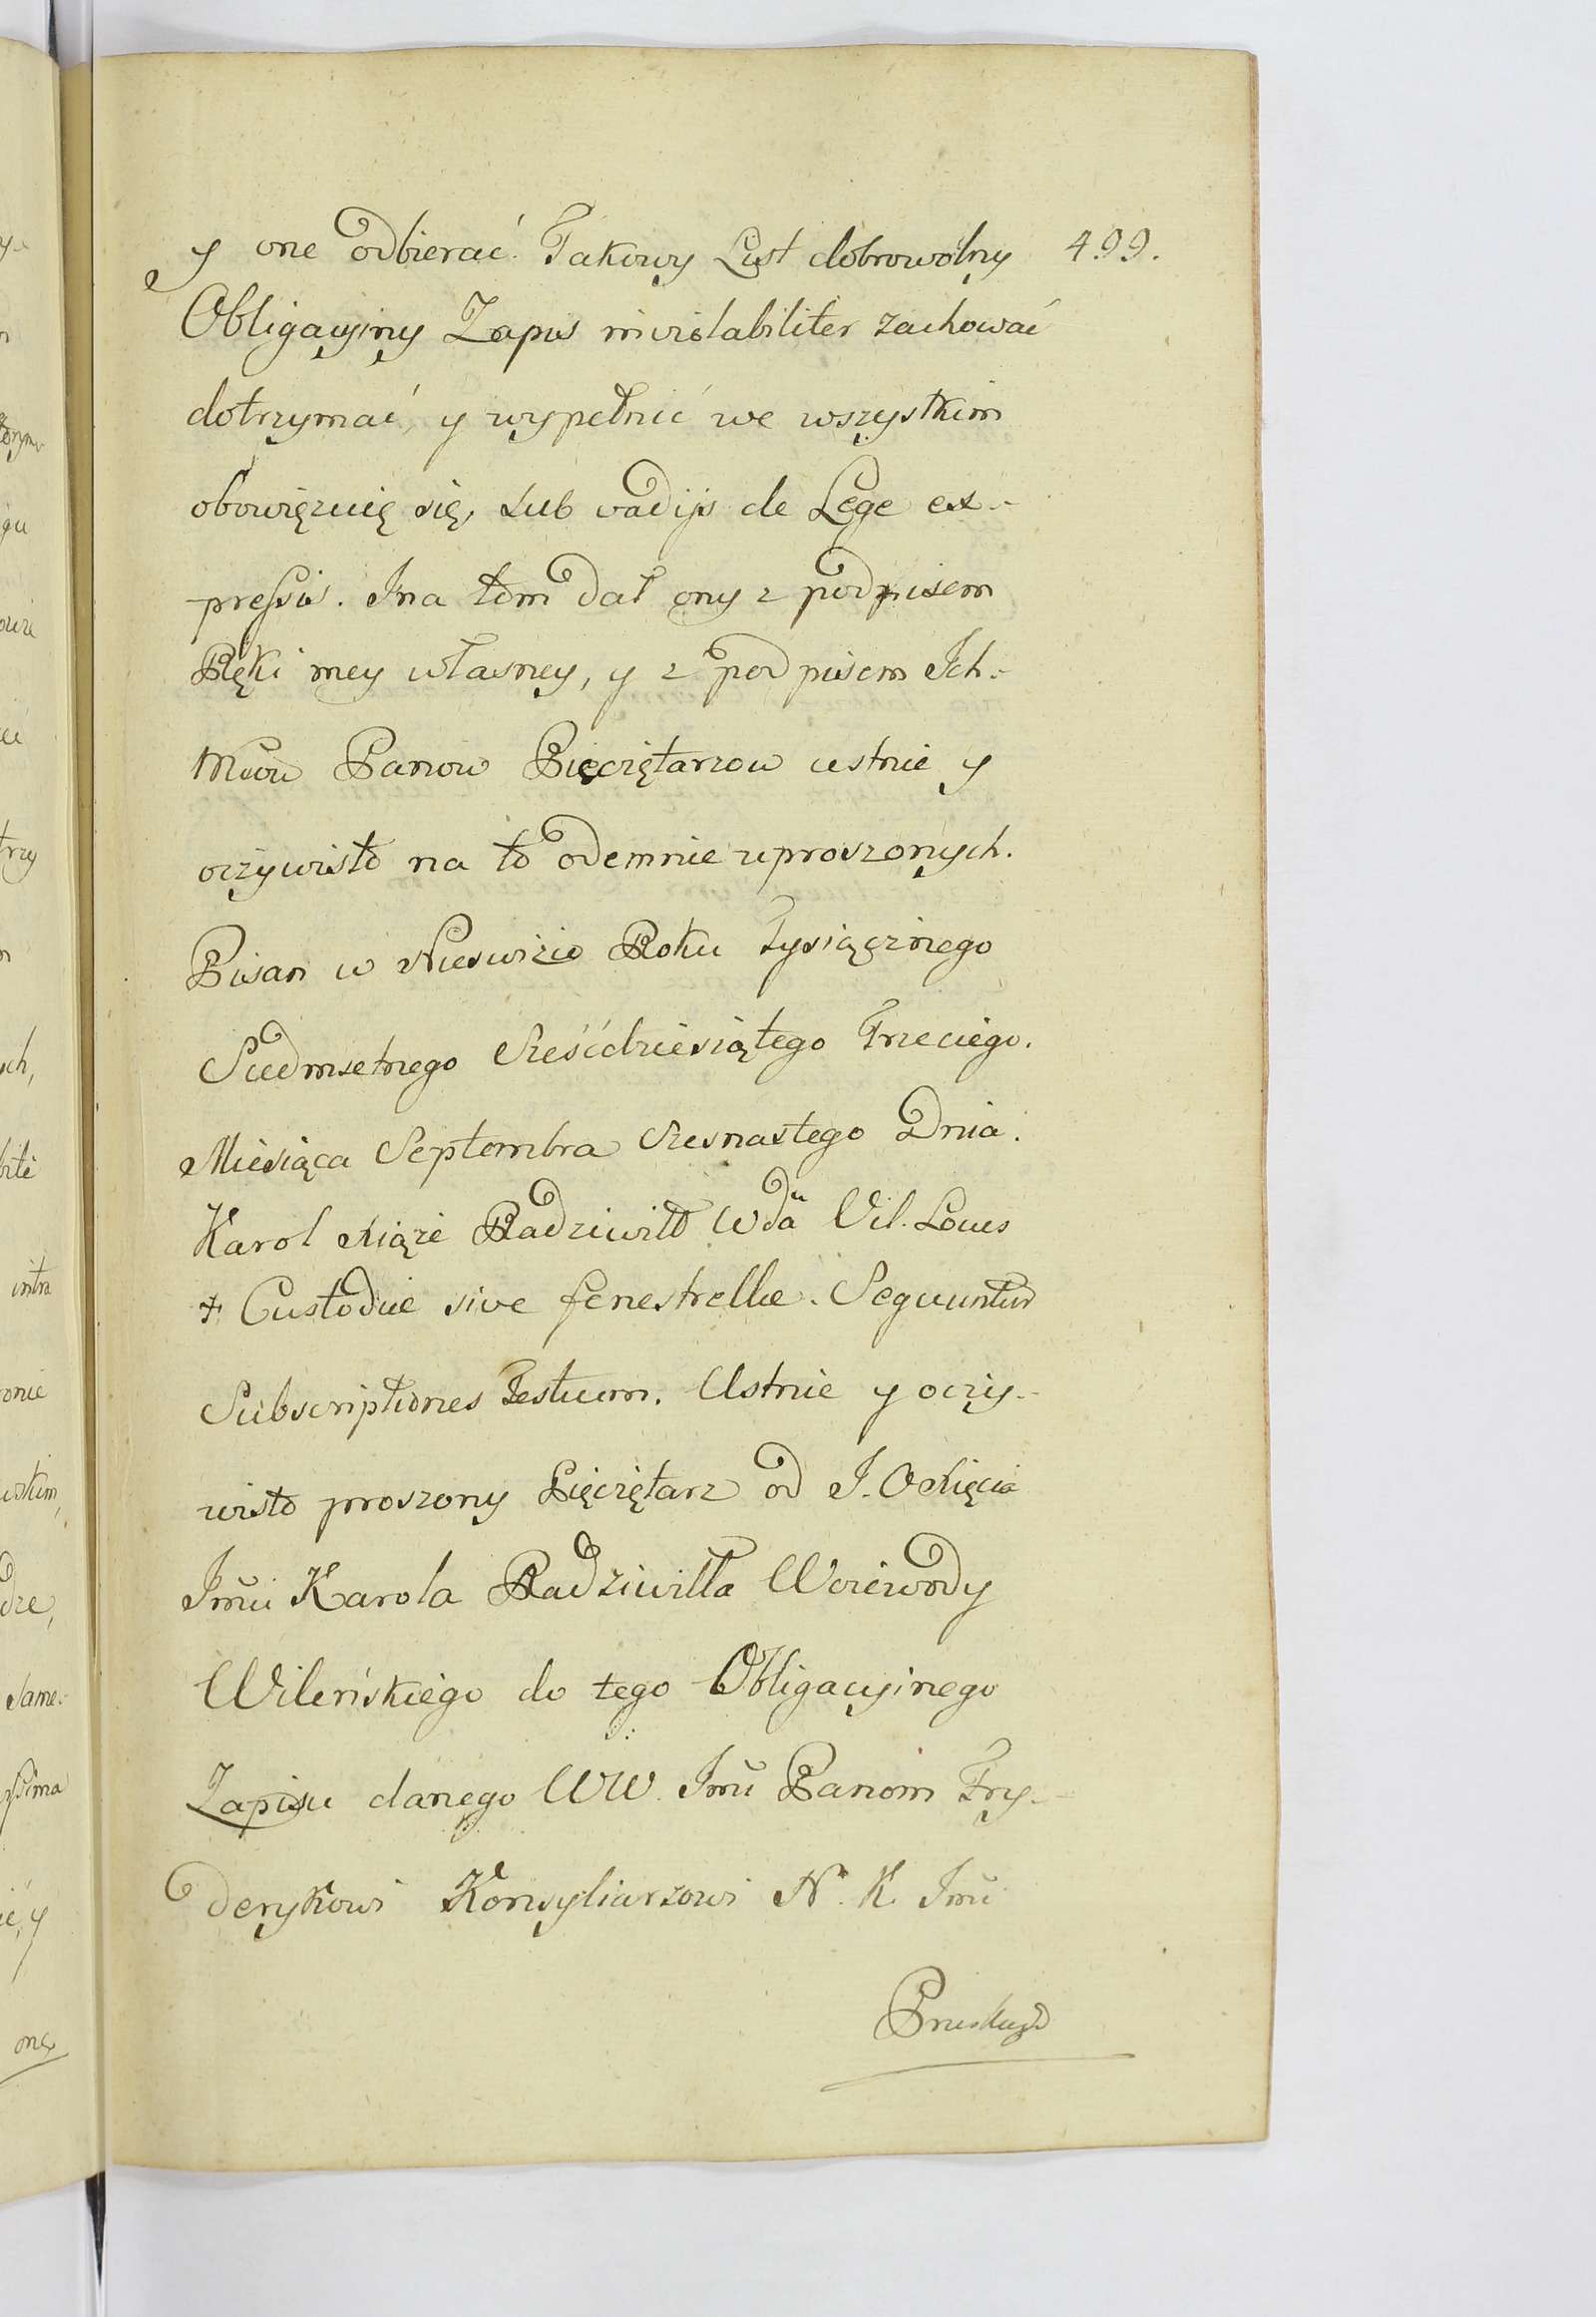 y one odbierać. Takowy List dobrowolny 499.
Obligacyiny Zapis inviolabiliter zachować
dotrzymać, y wypełnić we wszystkim
obowięzuię się, sub vadijs de Lege ex-
pressis. I na tom dał ony z podpisem
Ręki mey własney, y z podpisem Ich-
Mciow Panow Pięczętarzow ustnie y
oczywisto na to odemnie uproszonych.
Pisan w Nieswiżu Roku Tysiącznego
Siedmsetnego Sześćdziesiątego Trzeciego.
Miesiąca Septembra Szesnastego Dnia.
Karol Xiąże Radziwiłł Wda Wil. Locus
Custodiæ sive fenestrellæ. Sequuntur
Subscriptiones Testium. Ustnie y oczy-
wisto proszony Pięczętarz od J. O Xięcia
Jmci Karola Radziwiłła Woiewody
Wileńskiego do tego Obligacyinego
Zapisu danego WW. Jmci Panom Fry-
derykowi Konsyliarzowi N. K. Jmci
Pruskugo